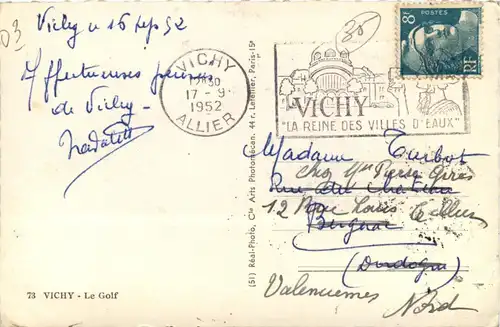 D3
Vichy le 16 Sep 52
Affectueuses pensées
de Vichy -
35
VICHY
1830
17 - 9
1952
ALLIER
8
POSTES
RF
VICHY
"LA REINE DES VILLES D'EAUX"
Madame Turbot
chez Mr Pierre Giret
Rue du Château
12 Rue Louis
Bergerac
(Dordogne)
Valenciennes
Nord
(51) Réal-Photo, Cie Arts Photomécan. 44 r. Letellier, Paris-15e
73 VICHY - Le Golf